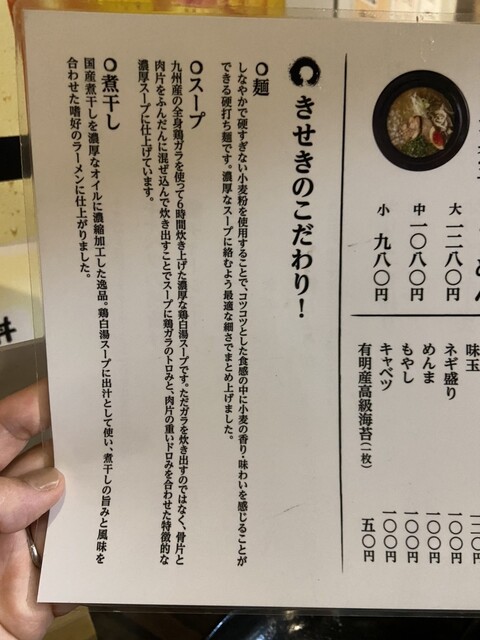 大 一二八〇円
中 一〇八〇円
小 九八〇円
味玉
ネギ盛り 一〇〇円
めんま 一〇〇円
もやし 一〇〇円
キャベツ 一〇〇円
有明産高級海苔(一枚) 五〇円
きせきのこだわり!
麺
しなやかで硬すぎない小麦粉を使用することで、コツコツとした食感の中に小麦の香り・味わいを感じることが
できる硬打ち麺です。濃厚なスープに絡むよう最適な細さでまとめ上げました。
スープ
九州産の全身鶏ガラを使って6時間炊き上げた濃厚な鶏白湯スープです。ただガラを炊き出すのではなく、骨片と
肉片をふんだんに混ぜ込んで炊き出すことでスープに鶏ガラのトロみと、肉片の重いドロみを合わせた特徴的な
濃厚スープに仕上げています。
煮干し
国産煮干しを濃厚なオイルに濃縮加工した逸品。鶏白湯スープに出汁として使い、煮干しの旨みと風味を
合わせた嗜好のラーメンに仕上がりました。
丼